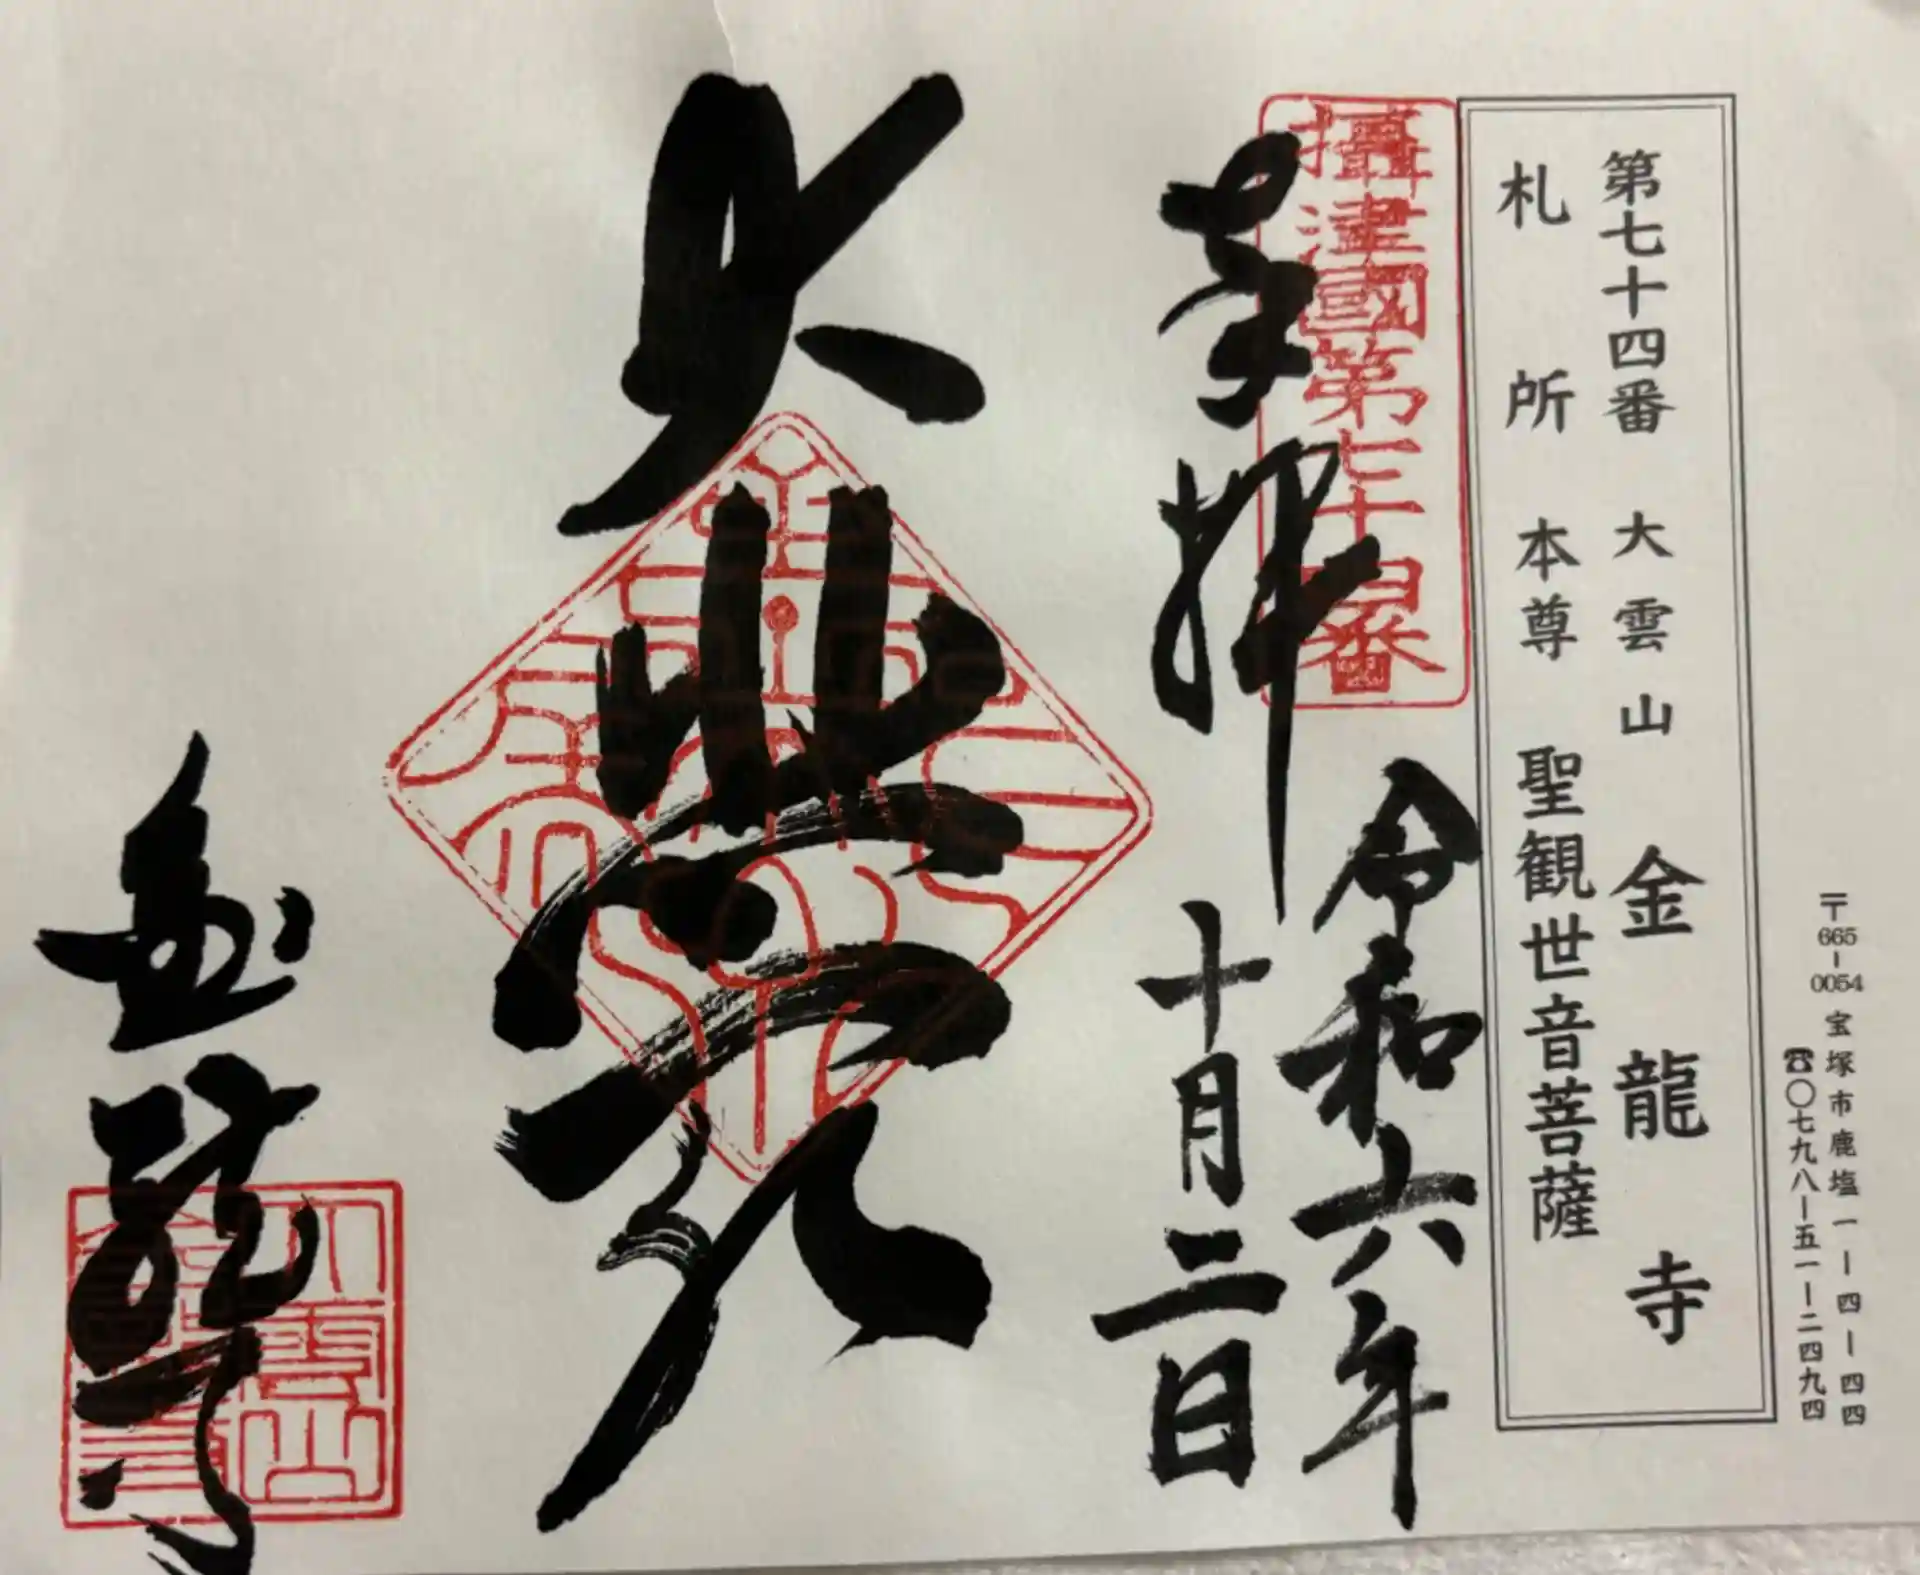 〒665-0054 宝塚市鹿塩一-四-四四
☎〇七九八-五一-二四九四
第七十四番 大雲山 金龍寺
札所本尊 聖観世音菩薩
攝津國第七十四番
奉拝
令和六年
十月二日
大悲殿
金龍寺
大雲山